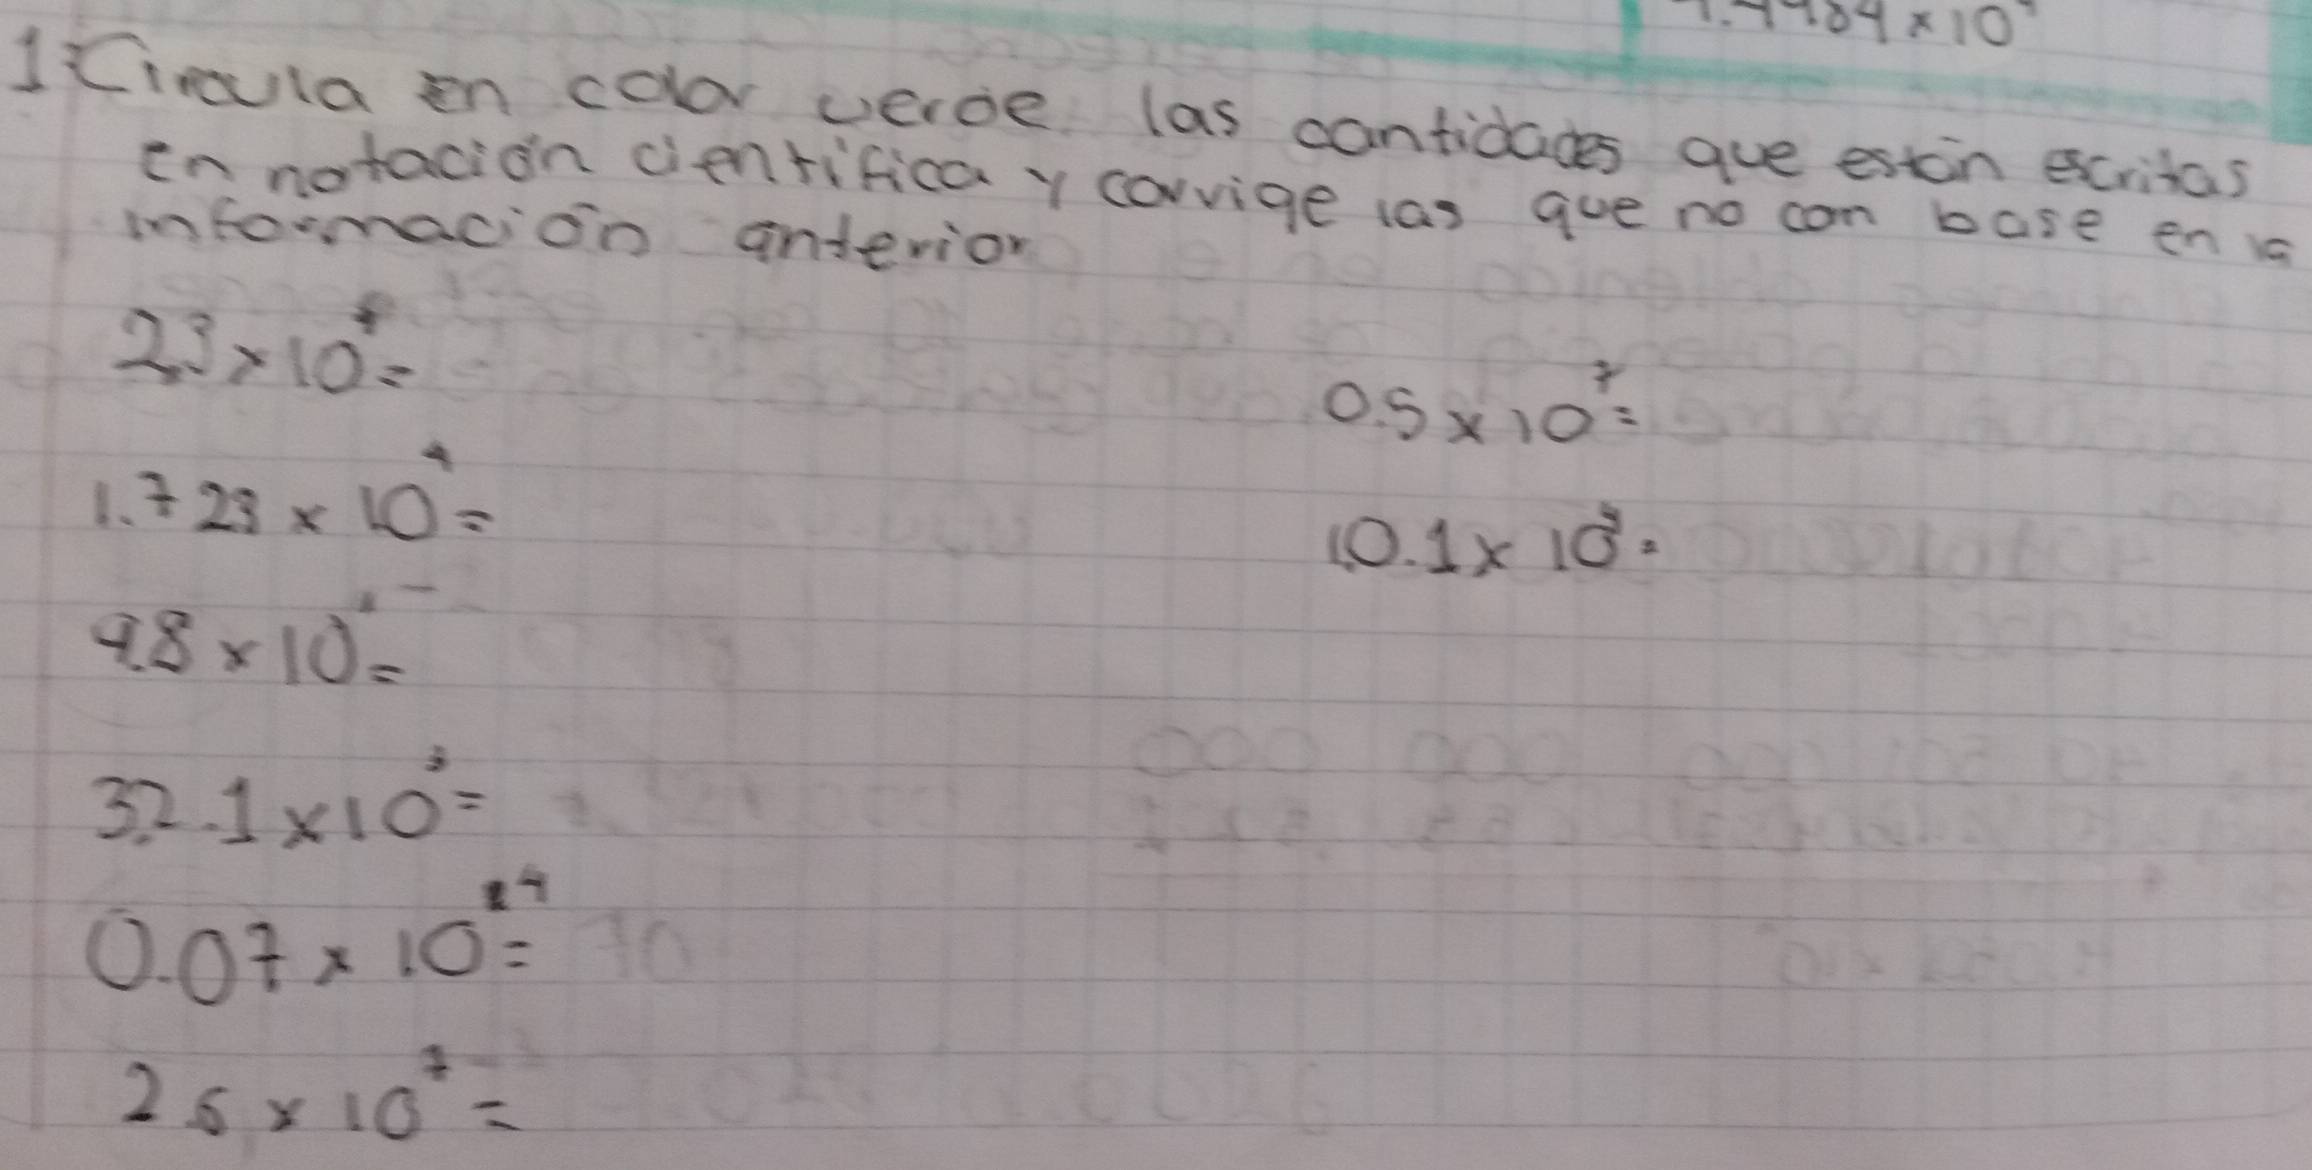 10
1 Circula en color verde las cantidades que están escritas
en notación cientifica y corrige las que no com base en la
información anterior
2.3 x 10 =
0.5 x 10⁷ =
1.723 x 10⁴ =
10.1 x 10 =
9.8 x 10 =
32.1 x 10³ =
0.07 x 10 =
2.6 x 10⁷ =